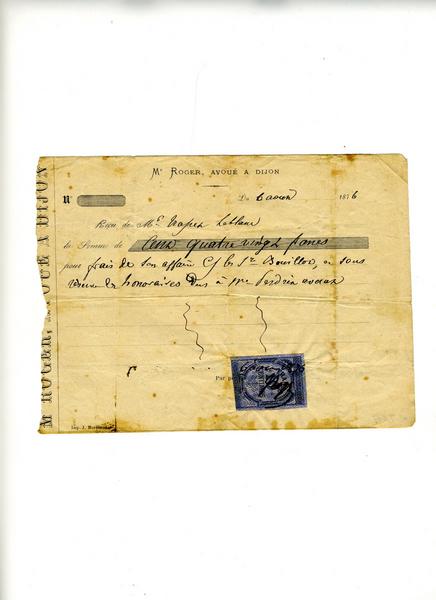 M ROGER, AVOUÉ A DIJON
Mᵉ ROGER, AVOUÉ A DIJON
N°
Du 6 1876
Reçu de Mᵉ Leblanc
la Somme de Cent quatre vingt francs
pour frais de son affaire C/ les Sʳˢ Bouillon, et sous
les honoraires dus à Mᵉ Perdrix avocat
Par
Imp. J.